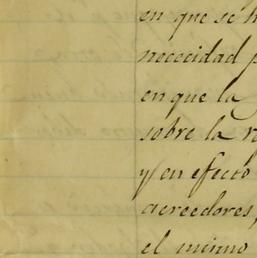 en que se h
nececidad p
en que la
sobre la r
y en efecto
acreedores,
el mismo